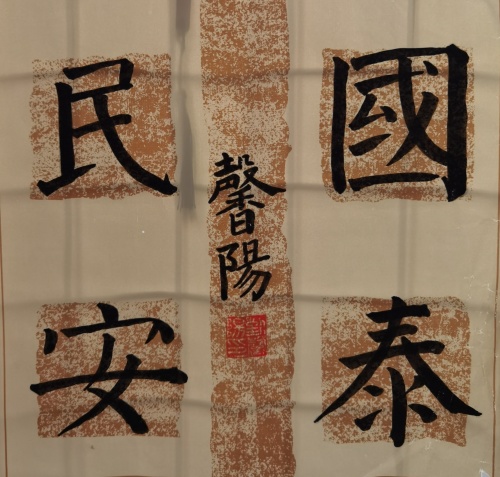 國泰
民安
馨陽